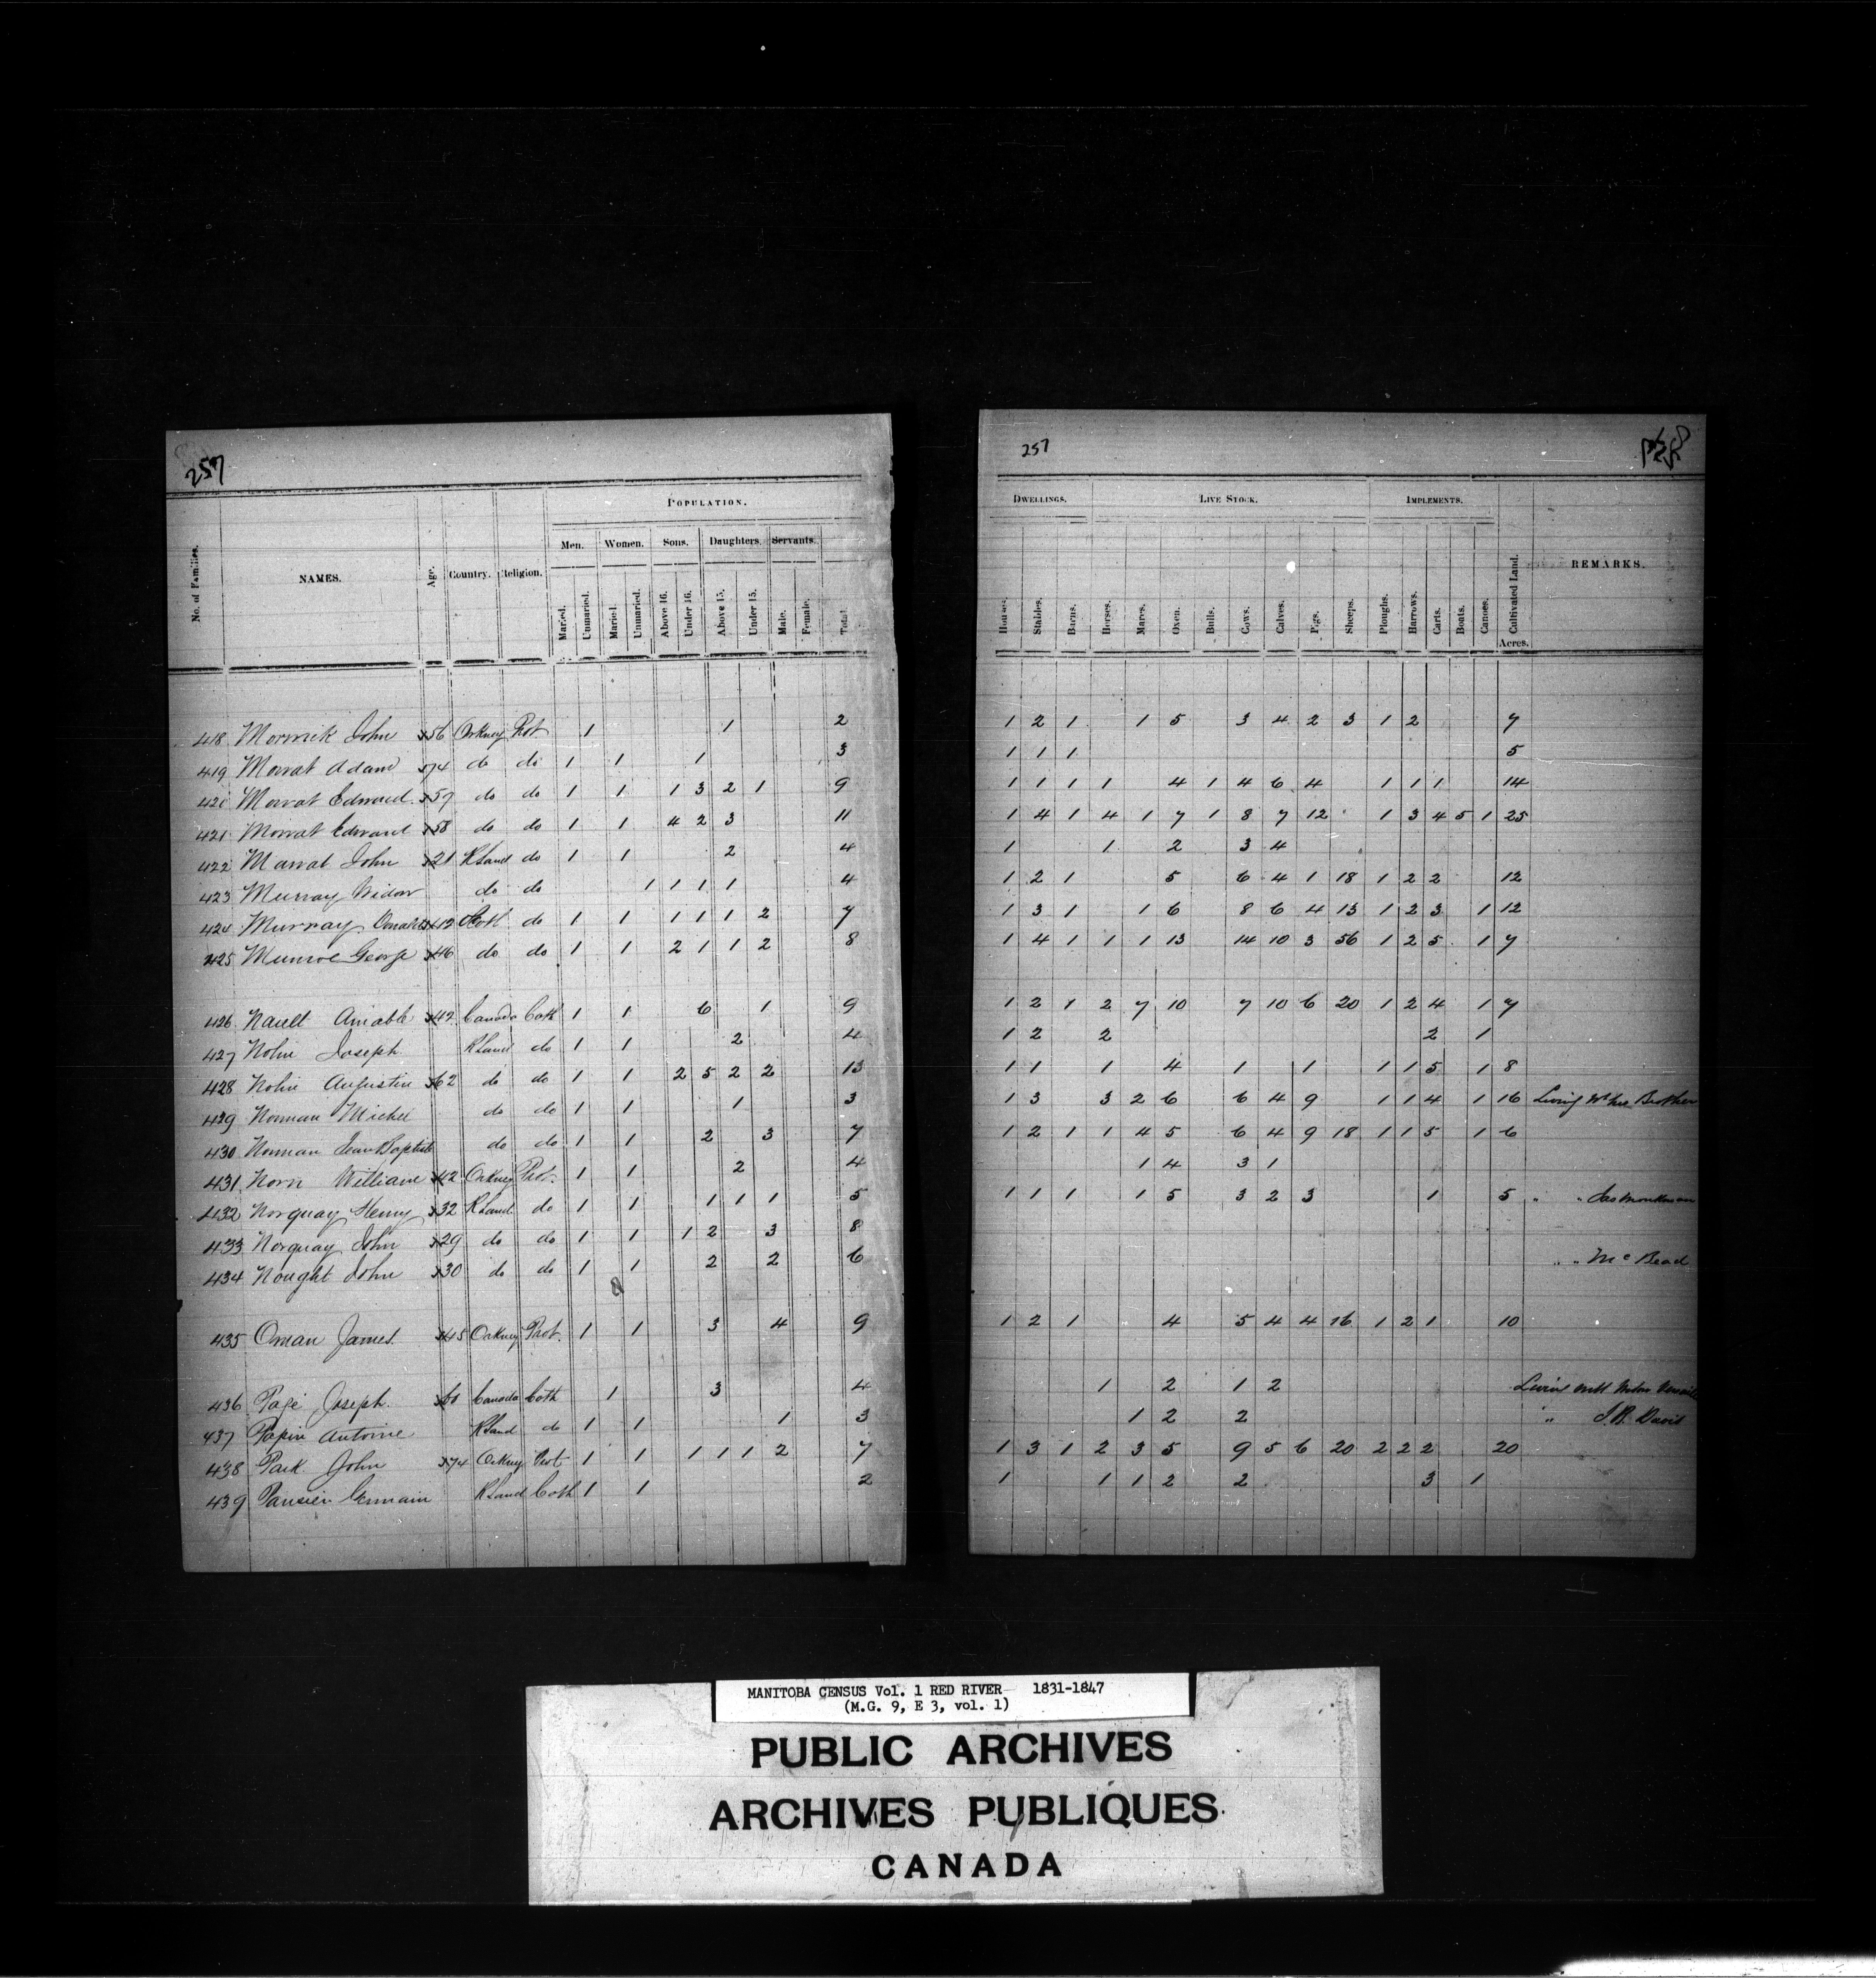 257
POPULATION.
Men. Women. Sons. Daughters. Servants.
No. of Families. NAMES. Age. Country. Religion. Married. Unmarried. Married. Unmarried. Above 16. Under 16. Above 15. Under 15. Male. Female. Total.
418 Morwick John 56 Orkney Prot 1 1 2
419 Mowat Adam 74 do do 1 1 1 3
420 Mowat Edward 59 do do 1 1 1 3 2 1 9
421 Mowat Edward 58 do do 1 1 4 2 3 11
422 Mawat John 21 RLand do 1 1 2 4
423 Murray Widow do do 1 1 1 1 4
424 Murray 42 Scotl do 1 1 1 1 1 2 7
425 Munroe George 46 do do 1 1 2 1 1 2 8
426 Nault Amable 42 Canada Cath 1 1 6 1 9
427 Nolin Joseph RLand do 1 1 2 4
428 Nolin Augustin 62 do do 1 1 2 5 2 2 13
429 Norman Michel do do 1 1 1 3
430 Norman Jean Baptiste do do 1 1 2 3 7
431 Norn William 42 Orkney Prot. 1 1 2 4
432 Norquay Henry 32 RLand. do 1 1 1 1 1 5
433 Norquay John 29 do do 1 1 1 2 3 8
434 Nought John 30 do do 1 1 2 2 6
435 Oman James 45 Orkney Prot. 1 1 3 4 9
436 Page Joseph 60 Canada Cath 1 3 4
437 Papin Antoine RLand do 1 1 1 3
438 Park John 74 Orkney Prot 1 1 1 1 1 2 7
439 Pausier Germain RLand Cath 1 1 2
257
DWELLINGS. LIVE STOCK. IMPLEMENTS.
Houses. Stables. Barns. Horses. Mares. Oxen. Bulls. Cows. Calves. Pigs. Sheeps. Ploughs. Harrows. Carts. Boats. Canoes. Cultivated Land. Acres. REMARKS.
1 2 1 1 5 3 4 2 3 1 2 7
1 1 1 5
1 1 1 1 4 1 4 6 4 1 1 1 14
1 4 1 4 1 7 1 8 7 12 1 3 4 5 1 25
1 1 2 3 4
1 2 1 5 6 4 1 18 1 2 2 12
1 3 1 1 6 8 6 4 13 1 2 3 1 12
1 4 1 1 1 13 14 10 3 56 1 2 5 1 7
1 2 1 2 7 10 7 10 6 20 1 2 4 1 7
1 2 2 2 1
1 1 1 4 1 1 1 1 5 1 8
1 3 3 2 6 6 4 9 1 1 4 1 16 Living Brother
1 2 1 1 4 5 6 4 9 18 1 1 5 1 6
1 4 3 1
1 1 1 1 5 3 2 3 1 5 " " Jas Monkman
" " McBead
1 2 1 4 5 4 4 16 1 2 1 10
1 2 1 2 Living with
1 2 2 " J.B. Davis
1 3 1 2 3 5 9 5 6 20 2 2 2 20
1 1 1 2 2 3 1
MANITOBA CENSUS Vol. 1 RED RIVER 1831-1847
(M.G. 9, E 3, vol. 1)
PUBLIC ARCHIVES
ARCHIVES PUBLIQUES
CANADA